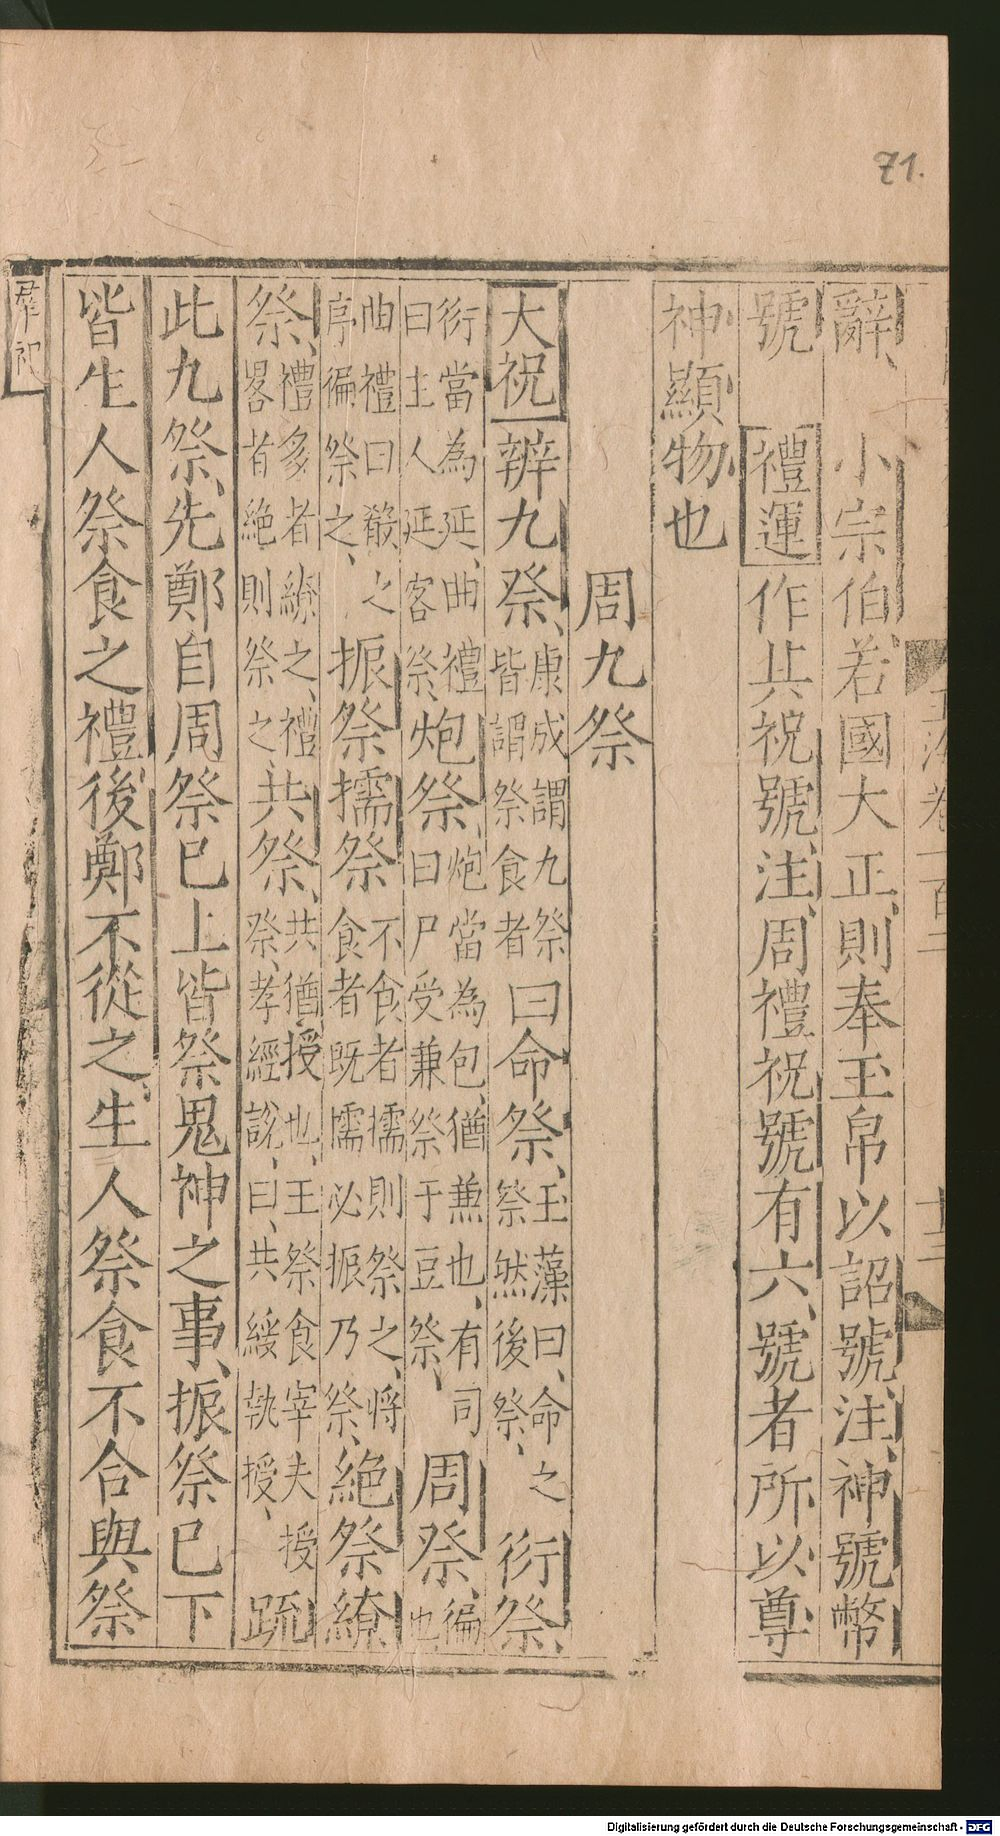 71.
玉海卷一百二 十三
辭、小宗伯若國大正、則奉玉帛以詔號、注、神號幣
號 禮運作其祝號、注、周禮祝號有六、號者所以尊
神顯物也
周九祭
大祝辨九祭、康成謂九祭皆謂祭食者曰命祭、玉藻曰、命之祭然後祭、衍祭、
衍當為延、曲禮曰主人延客祭、炮祭、炮當為包、猶兼也、有司曰尸受兼祭于豆祭、周祭、徧也
曲禮曰殽之序徧祭之、振祭擩祭不食者擩則祭之、將食者既擩必振乃祭、絕祭繚
祭、禮多者繚之、禮畧者絕則祭之、共祭、共猶授也、王祭食宰夫授祭、孝經說、曰、共綏執授、疏
此九祭、先鄭自周祭已上皆祭鬼神之事、振祭已下
皆生人祭食之禮、後鄭不從之、生人祭食不合與祭
羣祀
Digitalisierung gefördert durch die Deutsche Forschungsgemeinschaft - DFG